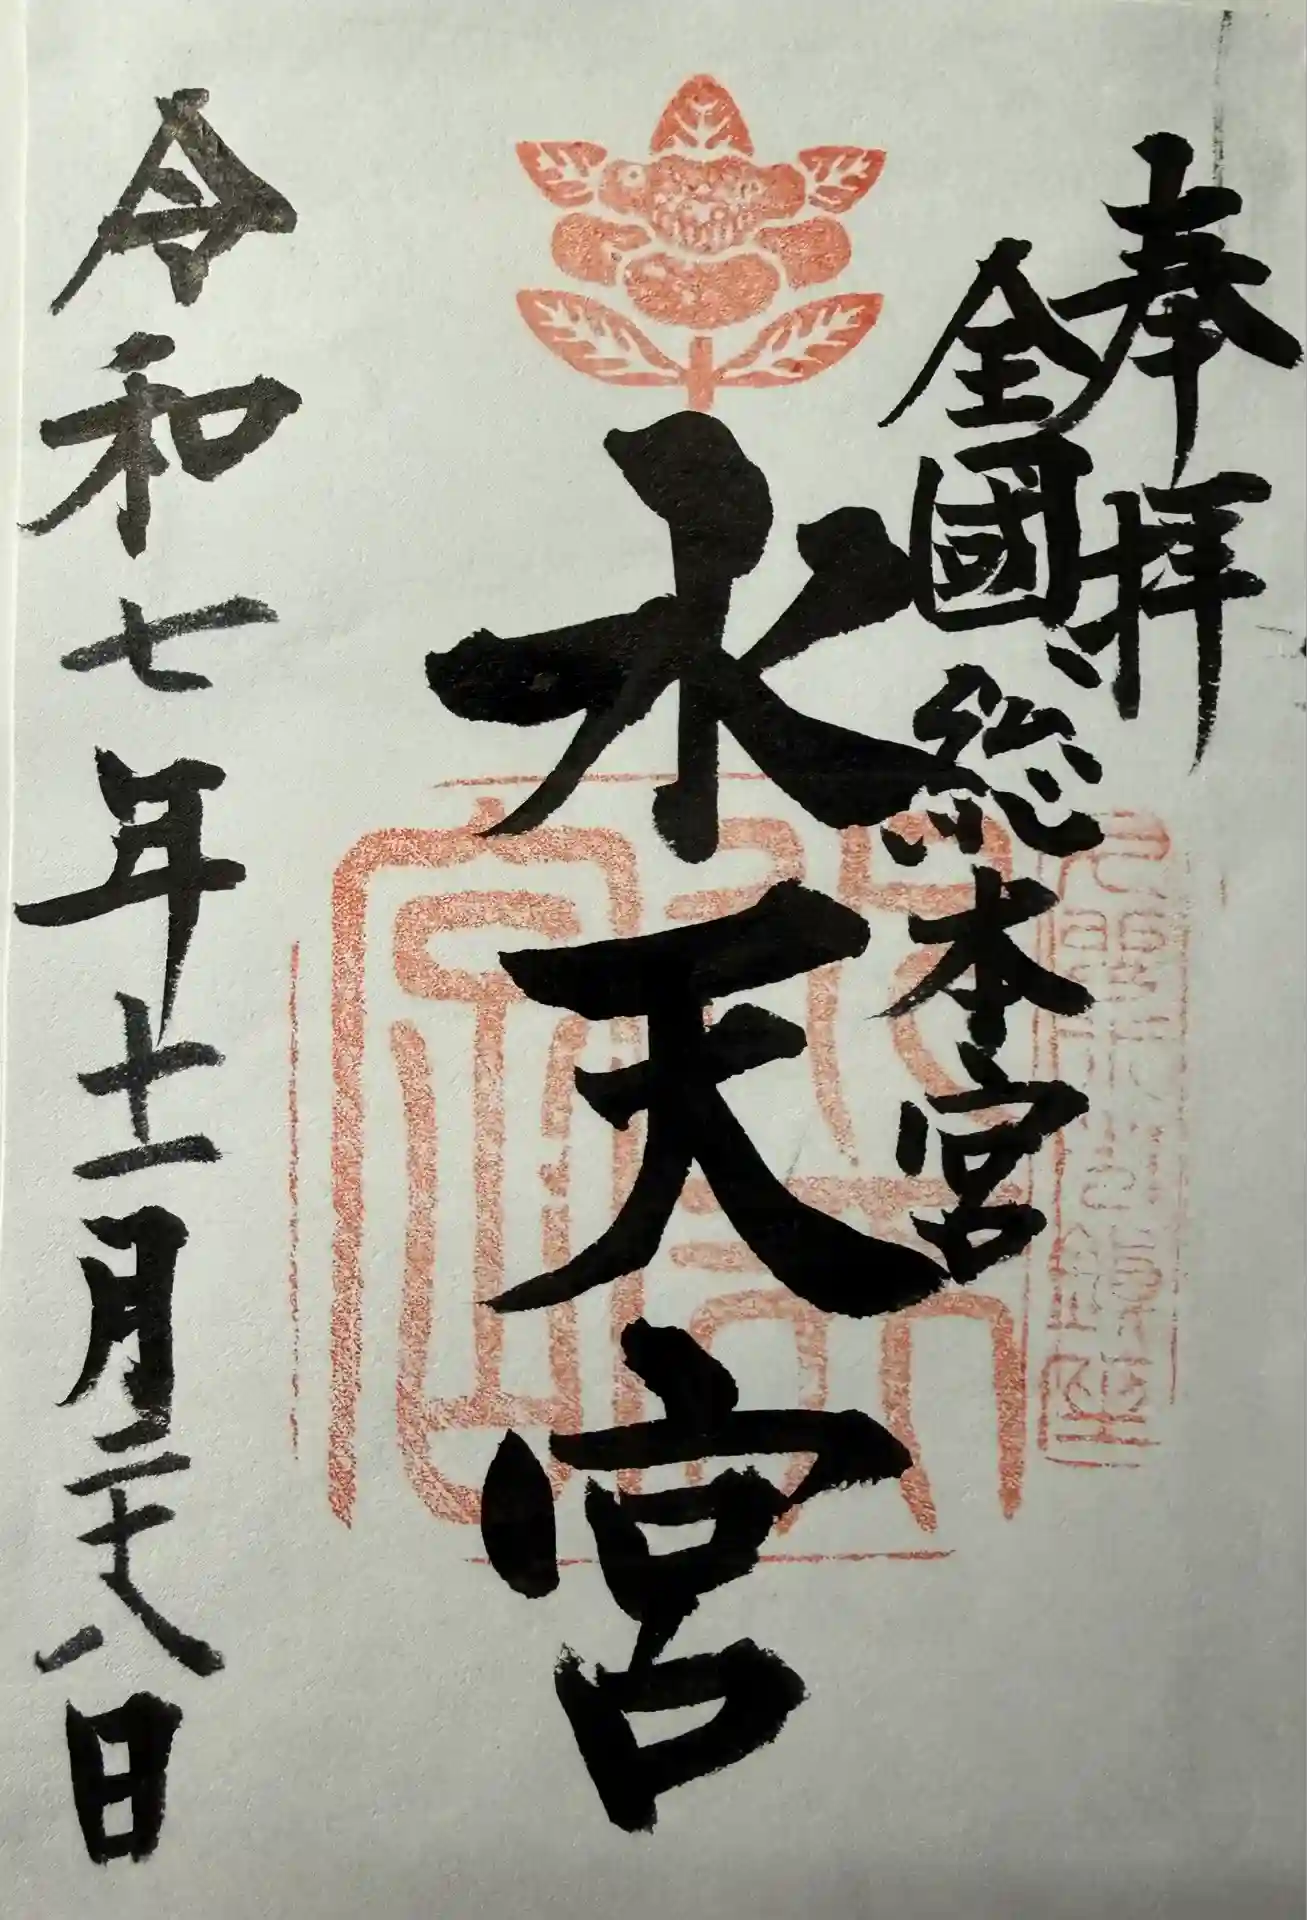 奉拝
全國総本宮
水天宮
令和七年十一月二十八日